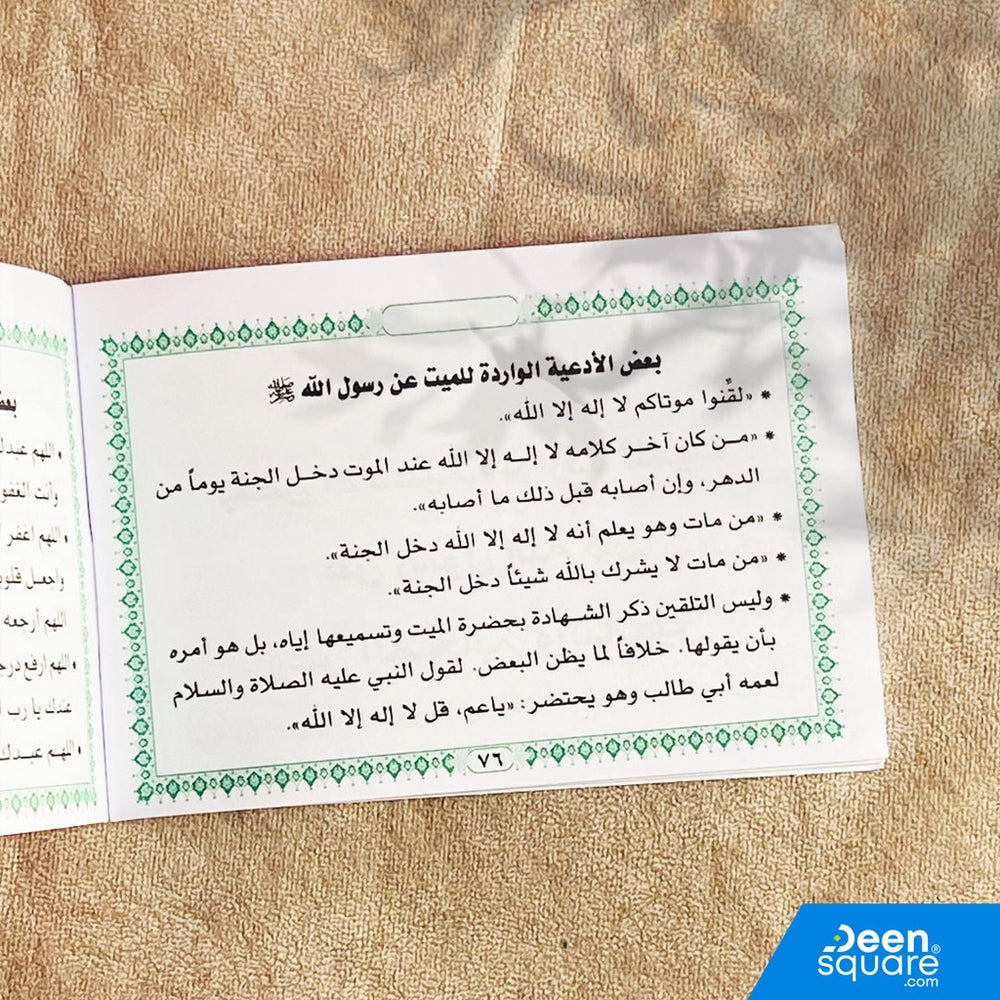 بعض الأدعية الواردة للميت عن رسول الله ﷺ
* «لقِّنوا موتاكم لا إله إلا الله».
* «مـن كان آخـر كلامه لا إلـه إلا الله عند الموت دخـل الجنة يوماً من
الدهر، وإن أصابه قبل ذلك ما أصابه».
* «من مات وهو يعلم أنه لا إله إلا الله دخل الجنة».
* «من مات لا يشرك بالله شيئاً دخل الجنة».
* وليس التلقين ذكر الشـهادة بحضرة الميت وتسميعها إياه، بل هو أمره
بأن يقولها. خلافاً لما يظن البعض. لقول النبي عليه الصلاة والسلام
لعمه أبي طالب وهو يحتضر: «ياعم، قل لا إله إلا الله».
٧٦
اللهم
وأنت
اللهم اغفر
واجعـل
اللهم أرجعه
اللهم ارفع
عندك يا رب
اللهـم عبـدك
Deen®
square
.com